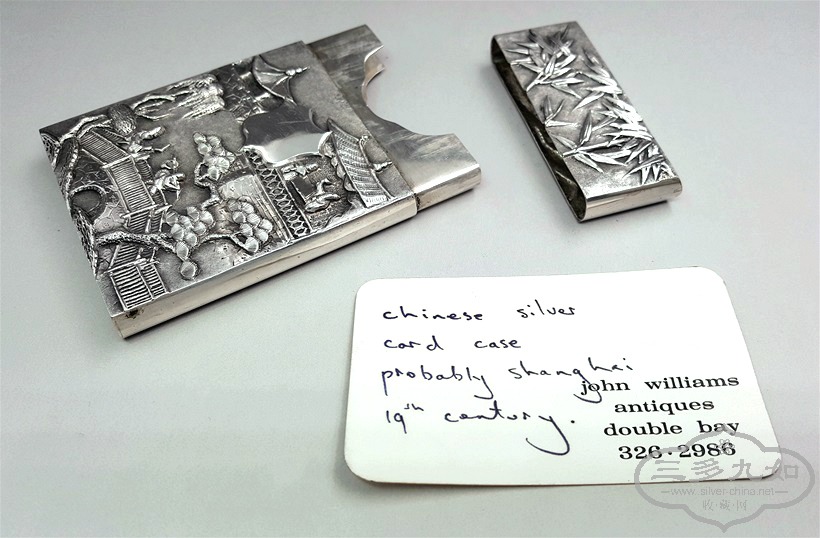 chinese silver
card case
probably shanghai
19th century.
john williams
antiques
double bay
326·2986
三多九如
www.silver-china.net
收·藏·网